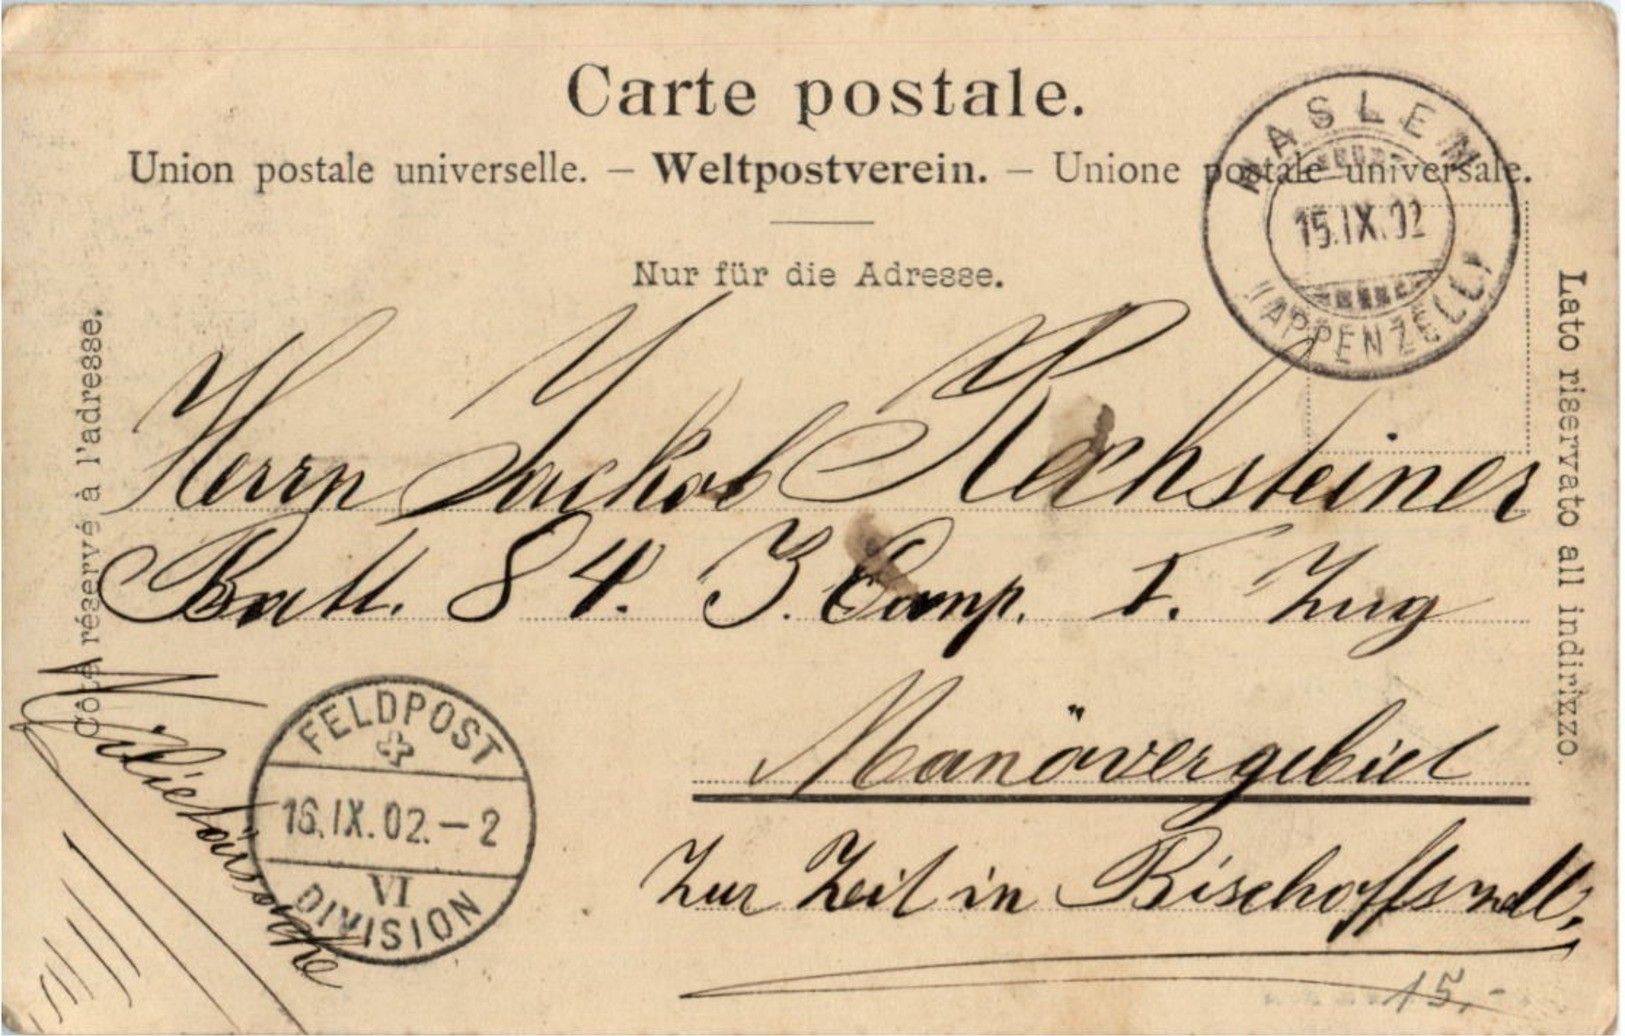 Carte postale.
Union postale universelle. – Weltpostverein. – Unione postale universale.
Nur für die Adresse.
HASLEN
(APPENZELL)
15.IX.02
Côté réservé à l'adresse.
Lato riservato all indirizzo.
Herrn Jackob Rechsteiner
Batt. 84. 3. Comp. I. Zug
Manövergebiet
Zur Zeit in Bischoffszell,
Militärsache
FELDPOST
16.IX.02.–2
VI
DIVISION
15.-